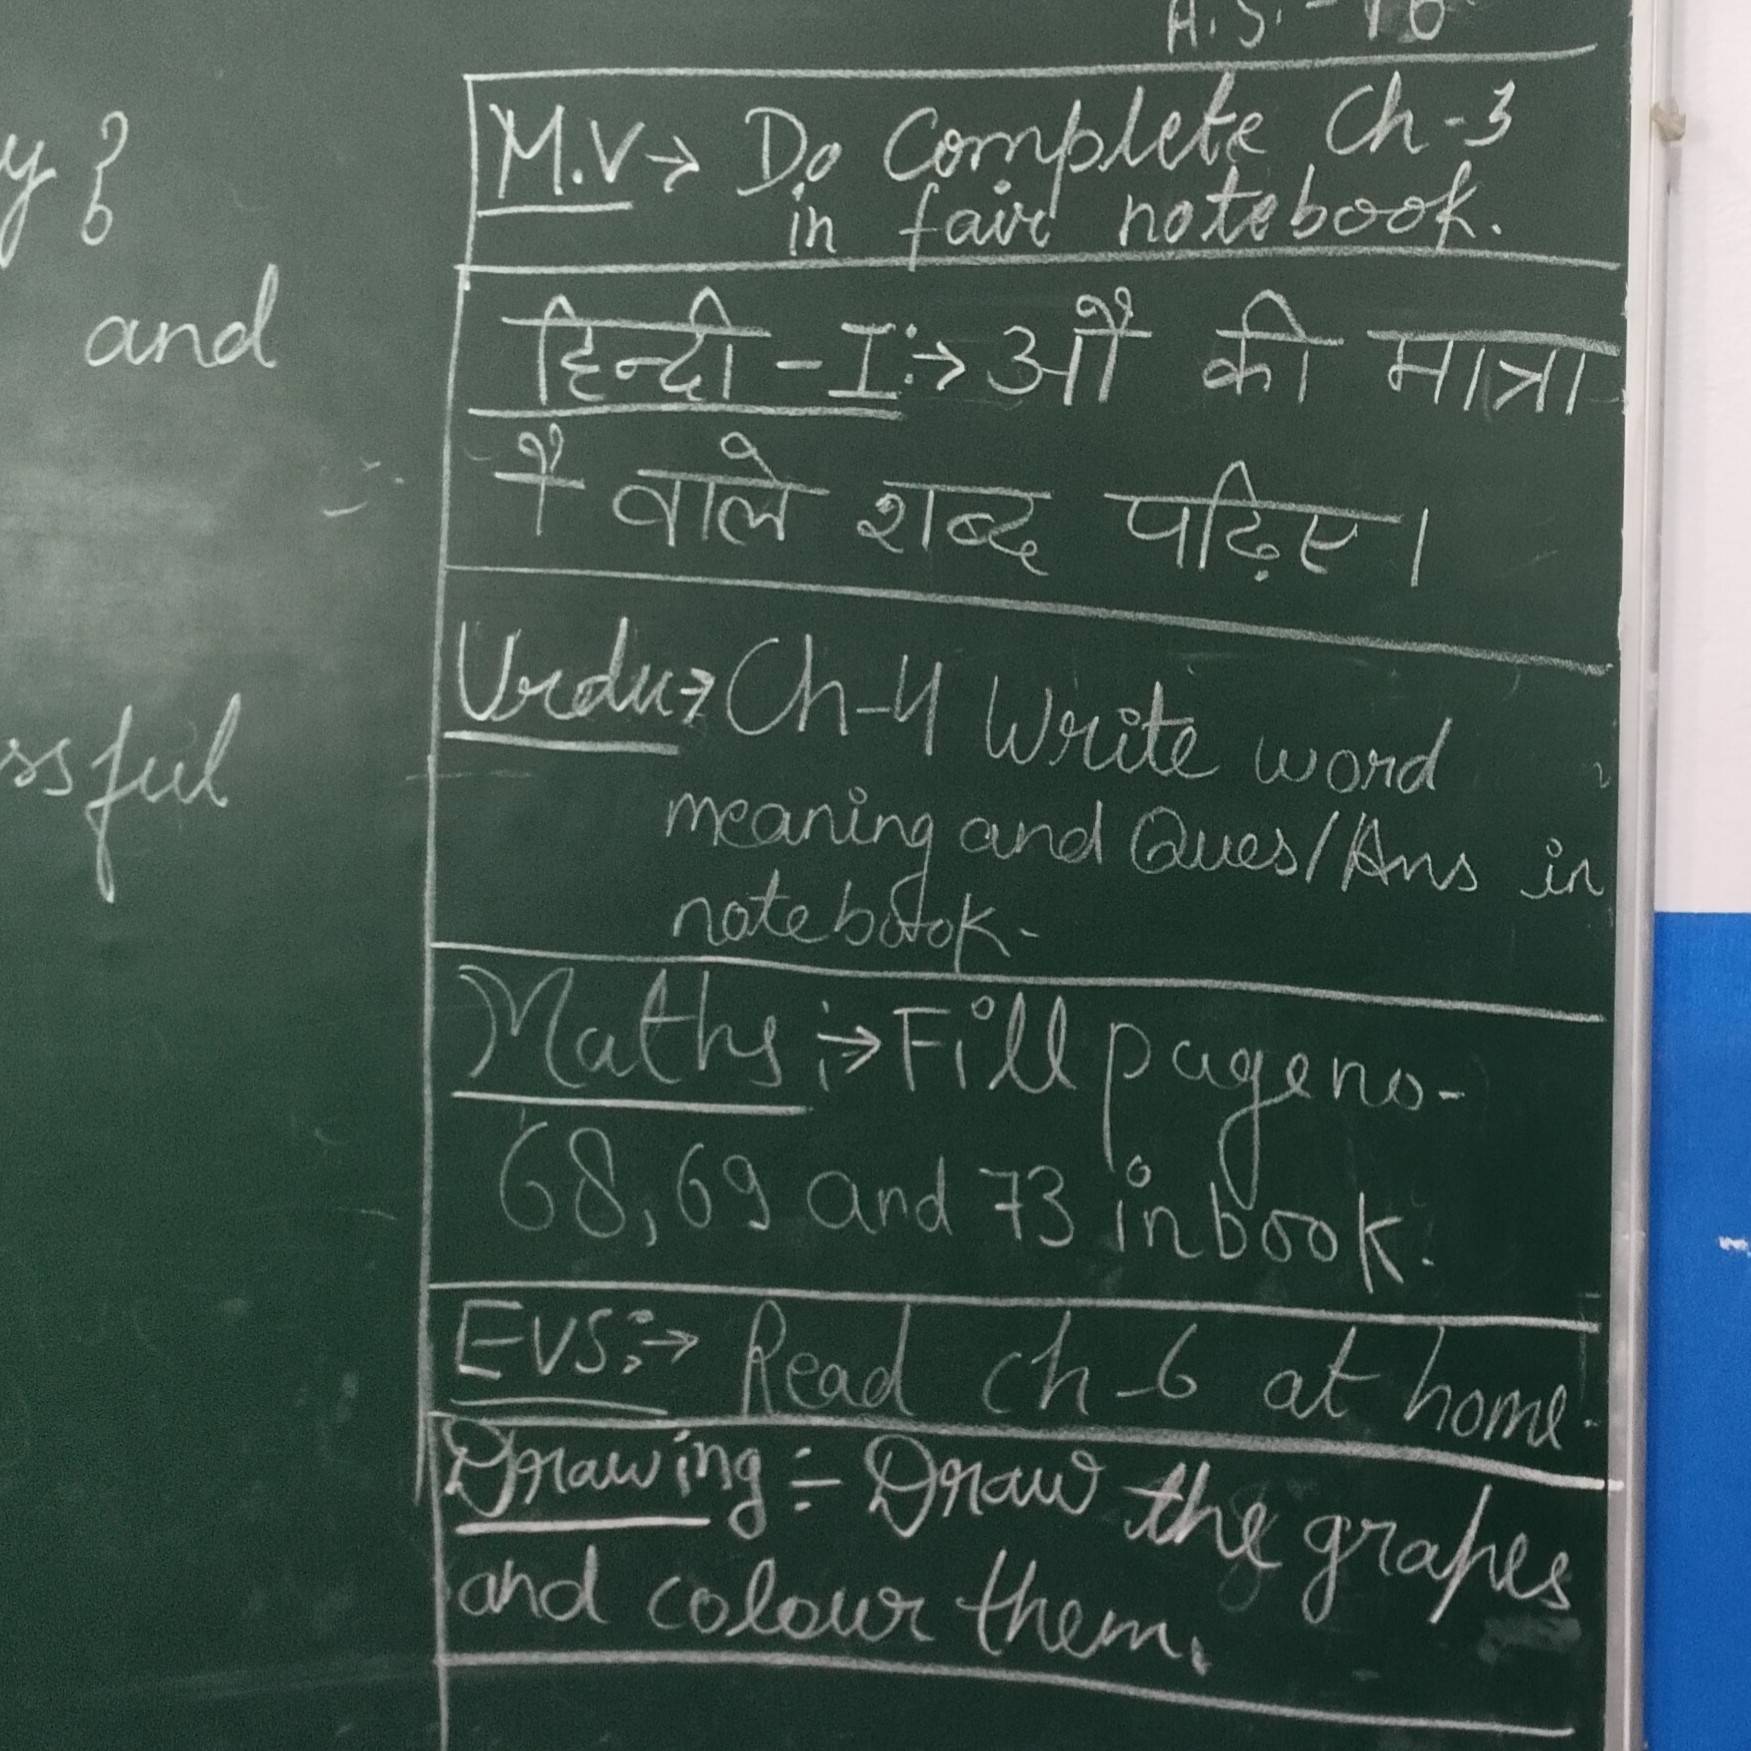 y ?
and
ssful
A.S. - 16
M.V → Do Complete Ch-3
in fair notebook.
हिन्दी - I :→ औ की मात्रा
ौ वाले शब्द पढ़िए।
Urdu → Ch-4 Write word
meaning and Ques/Ans in
notebook.
Maths :→ Fill page no-
68, 69 and 73 in book.
EVS :→ Read ch-6 at home.
Drawing :- Draw the grapes
and colour them.